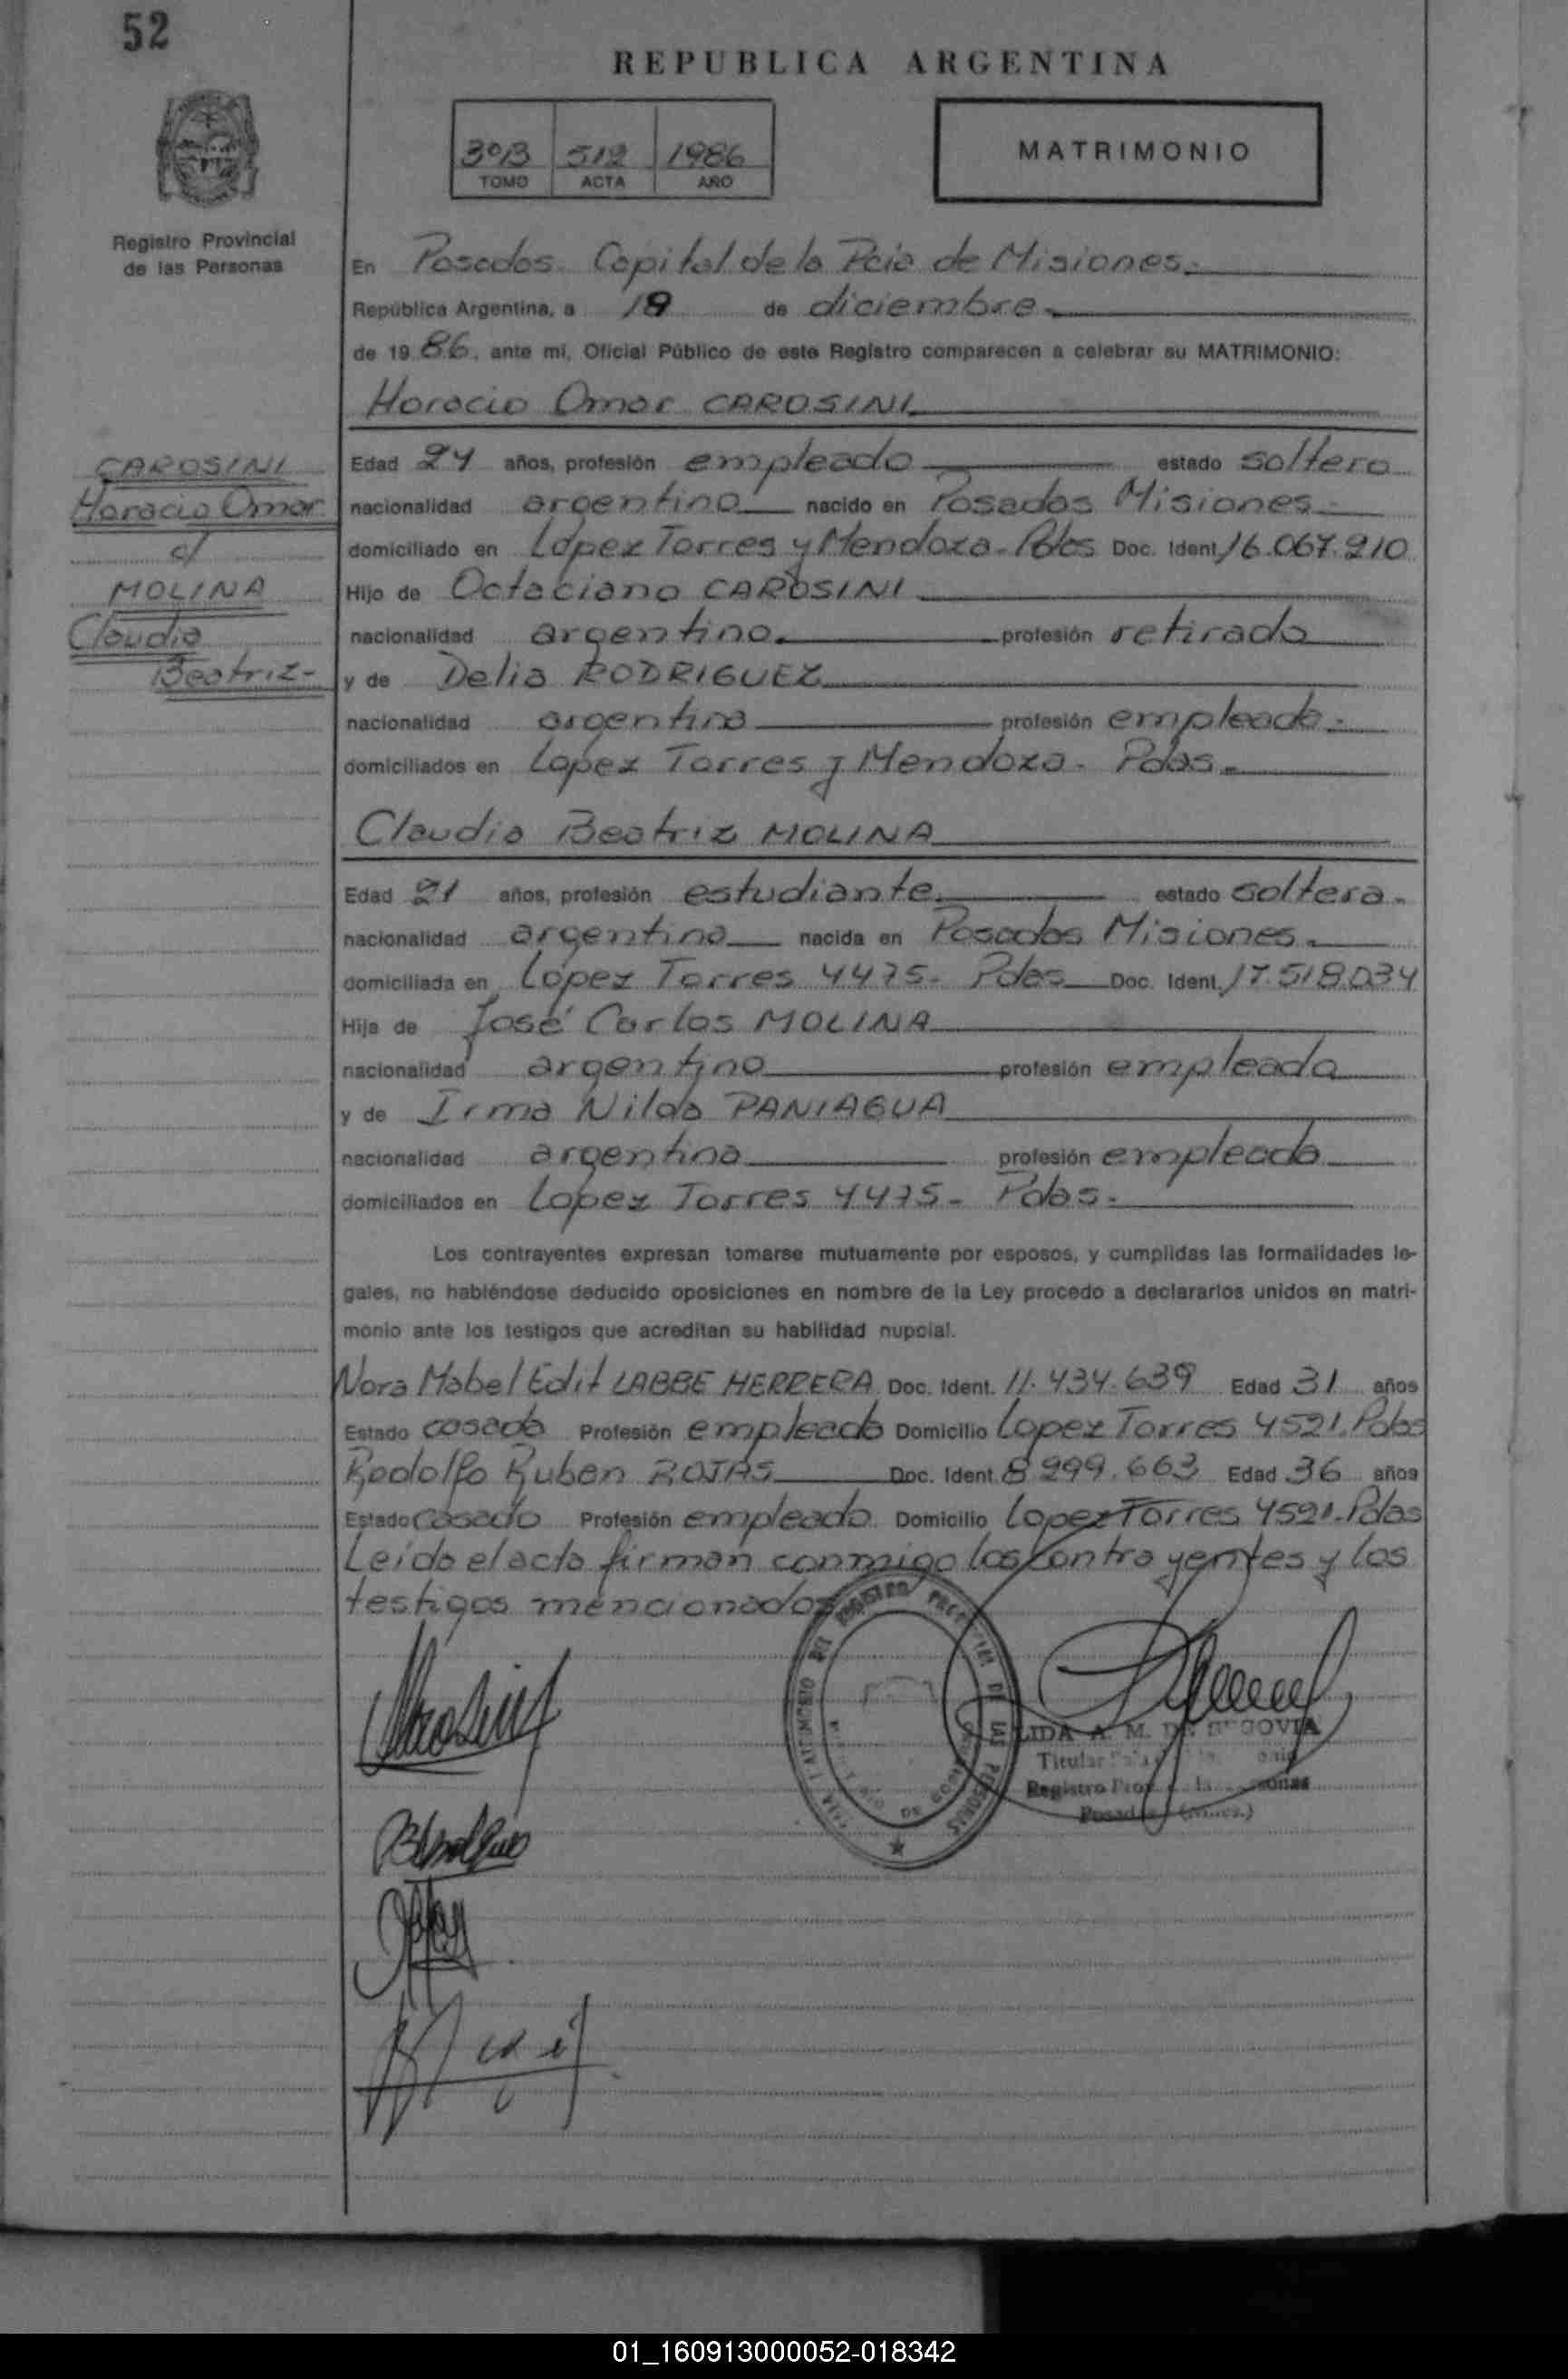 52
REPUBLICA ARGENTINA
3ºB 512 1986
TOMO ACTA AÑO
MATRIMONIO
Registro Provincial
de las Personas
En Posadas. Capital de la Pcia de Misiones.
República Argentina, a 19 de diciembre.
de 19 86, ante mi, Oficial Público de este Registro comparecen a celebrar su MATRIMONIO:
Horacio Omar CAROSINI
CAROSINI
Horacio Omar
c/
MOLINA
Claudia
Beatriz-
Edad 24 años, profesión empleado estado soltero
nacionalidad argentina nacido en Posadas Misiones.
domiciliado en López Torres y Mendoza. Pdas Doc. Ident. 16.067.210
Hijo de CAROSINI
nacionalidad argentino. profesión retirado
y de Delia RODRIGUEZ
nacionalidad argentina profesión empleada.
domiciliados en Lopez Torres y Mendoza. Pdas.
Claudia Beatriz MOLINA
Edad 21 años, profesión estudiante. estado soltera.
nacionalidad argentina nacida en Posadas Misiones.
domiciliada en López Torres 4475. Pdas Doc. Ident. 17.518.034
Hija de José Carlos MOLINA
nacionalidad argentino profesión empleado
y de Irma Nilda PANIAGUA
nacionalidad argentina profesión empleada
domiciliados en Lopez Torres 4475- Pdas.
Los contrayentes expresan tomarse mutuamente por esposos, y cumplidas las formalidades le-
gales, no habiéndose deducido oposiciones en nombre de la Ley procedo a declararlos unidos en matri-
monio ante los testigos que acreditan su habilidad nupcial.
Nora Mabel Edit LABBE HERRERA Doc. Ident. 11.434.639 Edad 31 años
Estado casada Profesión empleada Domicilio Lopez Torres 4521. Pdas
Rodolfo Ruben ROJAS Doc. Ident. 8.299.663 Edad 36 años
Estado casado Profesión empleado. Domicilio Lopez Torres 4521. Pdas
Leída el acta firman conmigo los contrayentes y los
testigos mencionados
LIDA A. M. DE SEGOVIA
Titular
Registro
Posadas (Mnes.)
01_160913000052-018342